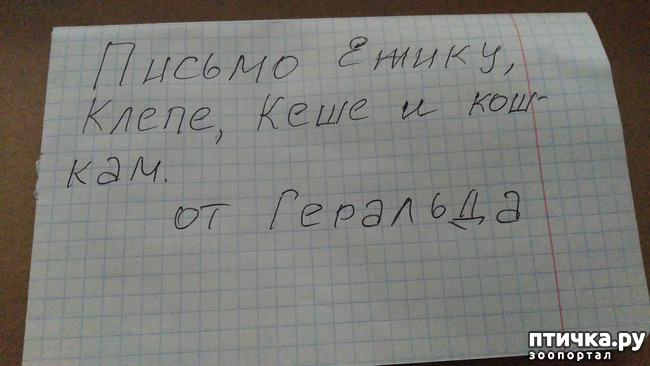 Письмо Ежику,
Клепе, Кеше и кош-
кам.
от Геральда
птичка.ру
зоопортал